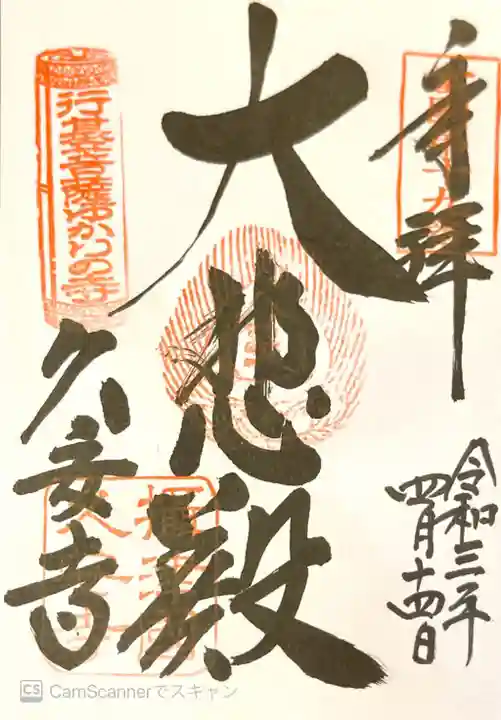 奉拝
令和三年
四月十四日
大悲殿
行基菩薩ゆかりの寺
久安寺
CS CamScannerでスキャン